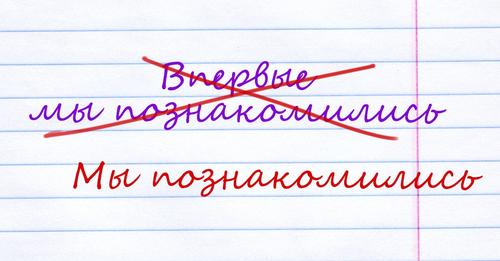 Впервые
мы познакомились
Мы познакомились